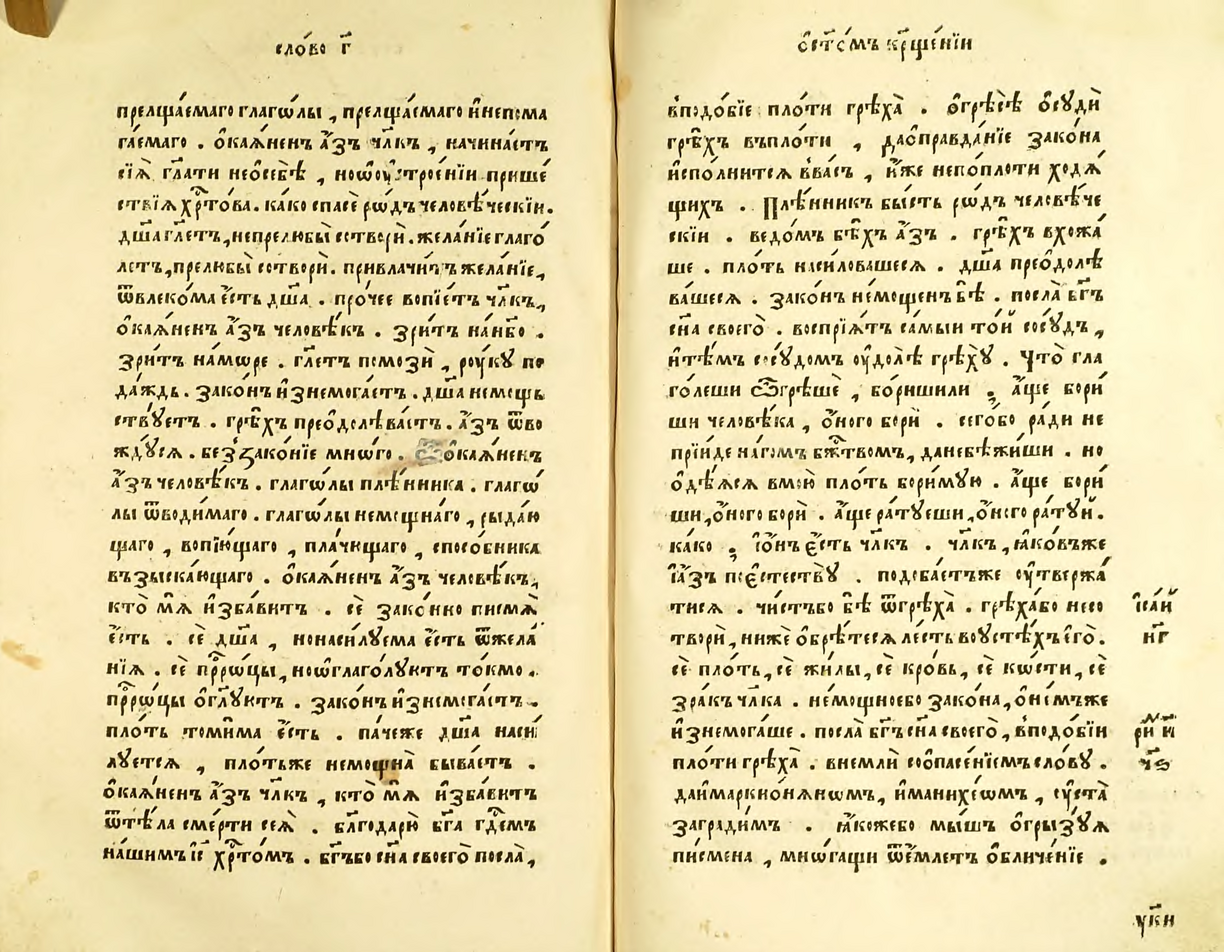 сло́во г҃
прелща́емаго глаго́лы , прелща́емаго и҆непома
га́емаго . ѻ҆кая́ненъ а҆́зъ чл҃къ , начина́етъ
сїѧ̀ гл҃ати неѻ҆себѣ̀ , ноѡ҆оу҆строе́нїи прише́
ствїѧ хр҃то́ва . ка́ко спасѐ рѡ́дъ человѣ́ческїи .
дш҃а гл҃етъ , непрелюбы̀ сотворѝ . жела́нїе глаго́
летъ , прелюбы̀ сотворѝ . привлачи́тъ жела́нїе ,
ѿвлеко́ма є҆́сть дш҃а . про́чее вопїе́тъ чл҃къ ,
ѻ҆кая́ненъ а҆́зъ человѣ́къ . зри́тъ нанб҃о .
зри́тъ намо́ре . гл҃етъ помозѝ , ро́укꙋ по
да́ждь . зако́нъ и҆знемога́етъ . дш҃а немощь
ствꙋетъ . грѣ́хъ преѻ҆долѣва́етъ . а҆́зъ ѿво
ждꙋ́сѧ . без̾зако́нїе мно́го . ѽ ѻ҆кая́ненъ
а҆́зъ человѣ́къ . глаго́лы плѣ́нника . глаго́
лы ѿводи́маго . глаго́лы немощна́го , рыда́ю
щаго , вопїю́щаго , пла́чищаго , спосо́бника
възыска́ющаго . ѻ҆кая́ненъ а҆́зъ человѣ́къ ,
кто̀ мѧ̀ и҆зба́витъ . сѐ зако́нно писмѧ̀
є҆́сть . сѐ дш҃а , нонаси́лꙋема є҆́сть ѿжела́
нїѧ . сѐ прⷪ҇ро́цы , ноѡ҆глаго́лꙋютъ то́кмо .
прⷪ҇ро́цы ѻ҆гл҃ꙋютъ . зако́нъ и҆знемога́етъ .
пло́ть томи́ма є҆́сть . па́чеже дш҃а наси́
лꙋетсѧ , пло́тьже немощна̀ быва́етъ .
ѻ҆кая́ненъ а҆́зъ чл҃къ , кто̀ мѧ̀ и҆зба́витъ
ѿтѣ́ла сме́рти сеѧ̀ . бл҃годарю̀ бг҃а гдⷭ҇емъ
на́шимъ і҆с҃ хр҃то́мъ . бг҃ъбо сн҃а своего̀ посла̀ ,
ѻ҆ст҃о́мъ кр҃ще́нїи
вподо́бїе пло́ти грѣха̀ . ѻ҆грѣсѣ̀ ѻ҆сꙋдѝ
грѣ́хъ въпло́ти , даѻ҆правда́нїе зако́на
и҆спо́лнитсѧ в́васъ , и҆́же непопло́ти ходѧ́
щихъ . Плѣ́нникъ бы́сть рѡ́дъ человѣ́че
скїи . ведо́мъ бѣ́хъ а҆́зъ . грѣ́хъ вхожа́
ше . пло́ть наси́ловашесѧ . дш҃а преѻ҆долѣ
ва́шесѧ . зако́нъ не́мощенъ бѣ̀ . посла̀ бг҃ъ
сн҃а своего̀ . воспрїѧ́тъ са́мыи то́й сосꙋ́дъ ,
и҆тѣ́мъ сосꙋ́домъ оу҆долѣ̀ грѣхꙋ̀ . Что̀ гла
го́леши ѽгрѣшѐ , бо́ришили ; а҆́ще бори́
ши человѣ́ка , ѻ҆́ного борѝ . сего́бо ра́ди не
прїи́де наги́мъ бжⷭ҇тво́мъ , данебѣжи́ши . но
ѻ҆дѣ́ѧсѧ вмою̀ пло́ть бори́мꙋю . а҆́ще бори́
ши , ѻ҆́ного борѝ . а҆́ще ра́тꙋеши , ѻ҆́ного ра́тꙋй .
ка́ко ; і҆ѻ́нъ є҆́сть чл҃къ . чл҃къ , ꙗ҆́ковъже
і҆а҆́зъ поє҆стествꙋ̀ . подоба́етъже оу҆твержа́
тисѧ . чи́стъбо бѣ̀ ѿгрѣха̀ . грѣха́бо несо
творѝ , ниже ѻ҆брѣ́тесѧ ле́сть воу҆стѣ́хъ є҆гѡ̀ .
сѐ пло́ть , сѐ жи́лы , сѐ кро́вь , сѐ ко́сти , сѐ
зра́къ чл҃ка . немощно́ебо зако́на , ѻ҆не́мъже
и҆знемога́ше . посла̀ бг҃ъ сн҃а своего̀ , вподо́бїи
пло́ти грѣха̀ . внемлѝ соѻ҆пасе́нїемъ сло́вꙋ .
даи҆маркио́нѧномъ , и҆манихе́омъ , оу҆ста̀
загради́мъ . ꙗ҆́коже́бо мы́шъ ѻ҆грызꙋ́ѧ
писмена , мно́гащи ѿе́млетъ ѻ҆бличе́нїе .
і҆са́й
нг҃
ри́ и҃
ч҃ѕ
ук҃и